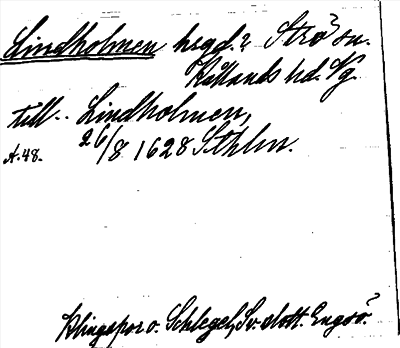 Lindholmen hsgd. i Strö sn.
Kållands hd. Vg.
till.. Lindholmen,
A.48. 26/8 1628 Sthlm.
Klingspor o. Schlegel, Sv. slott. Engsö.